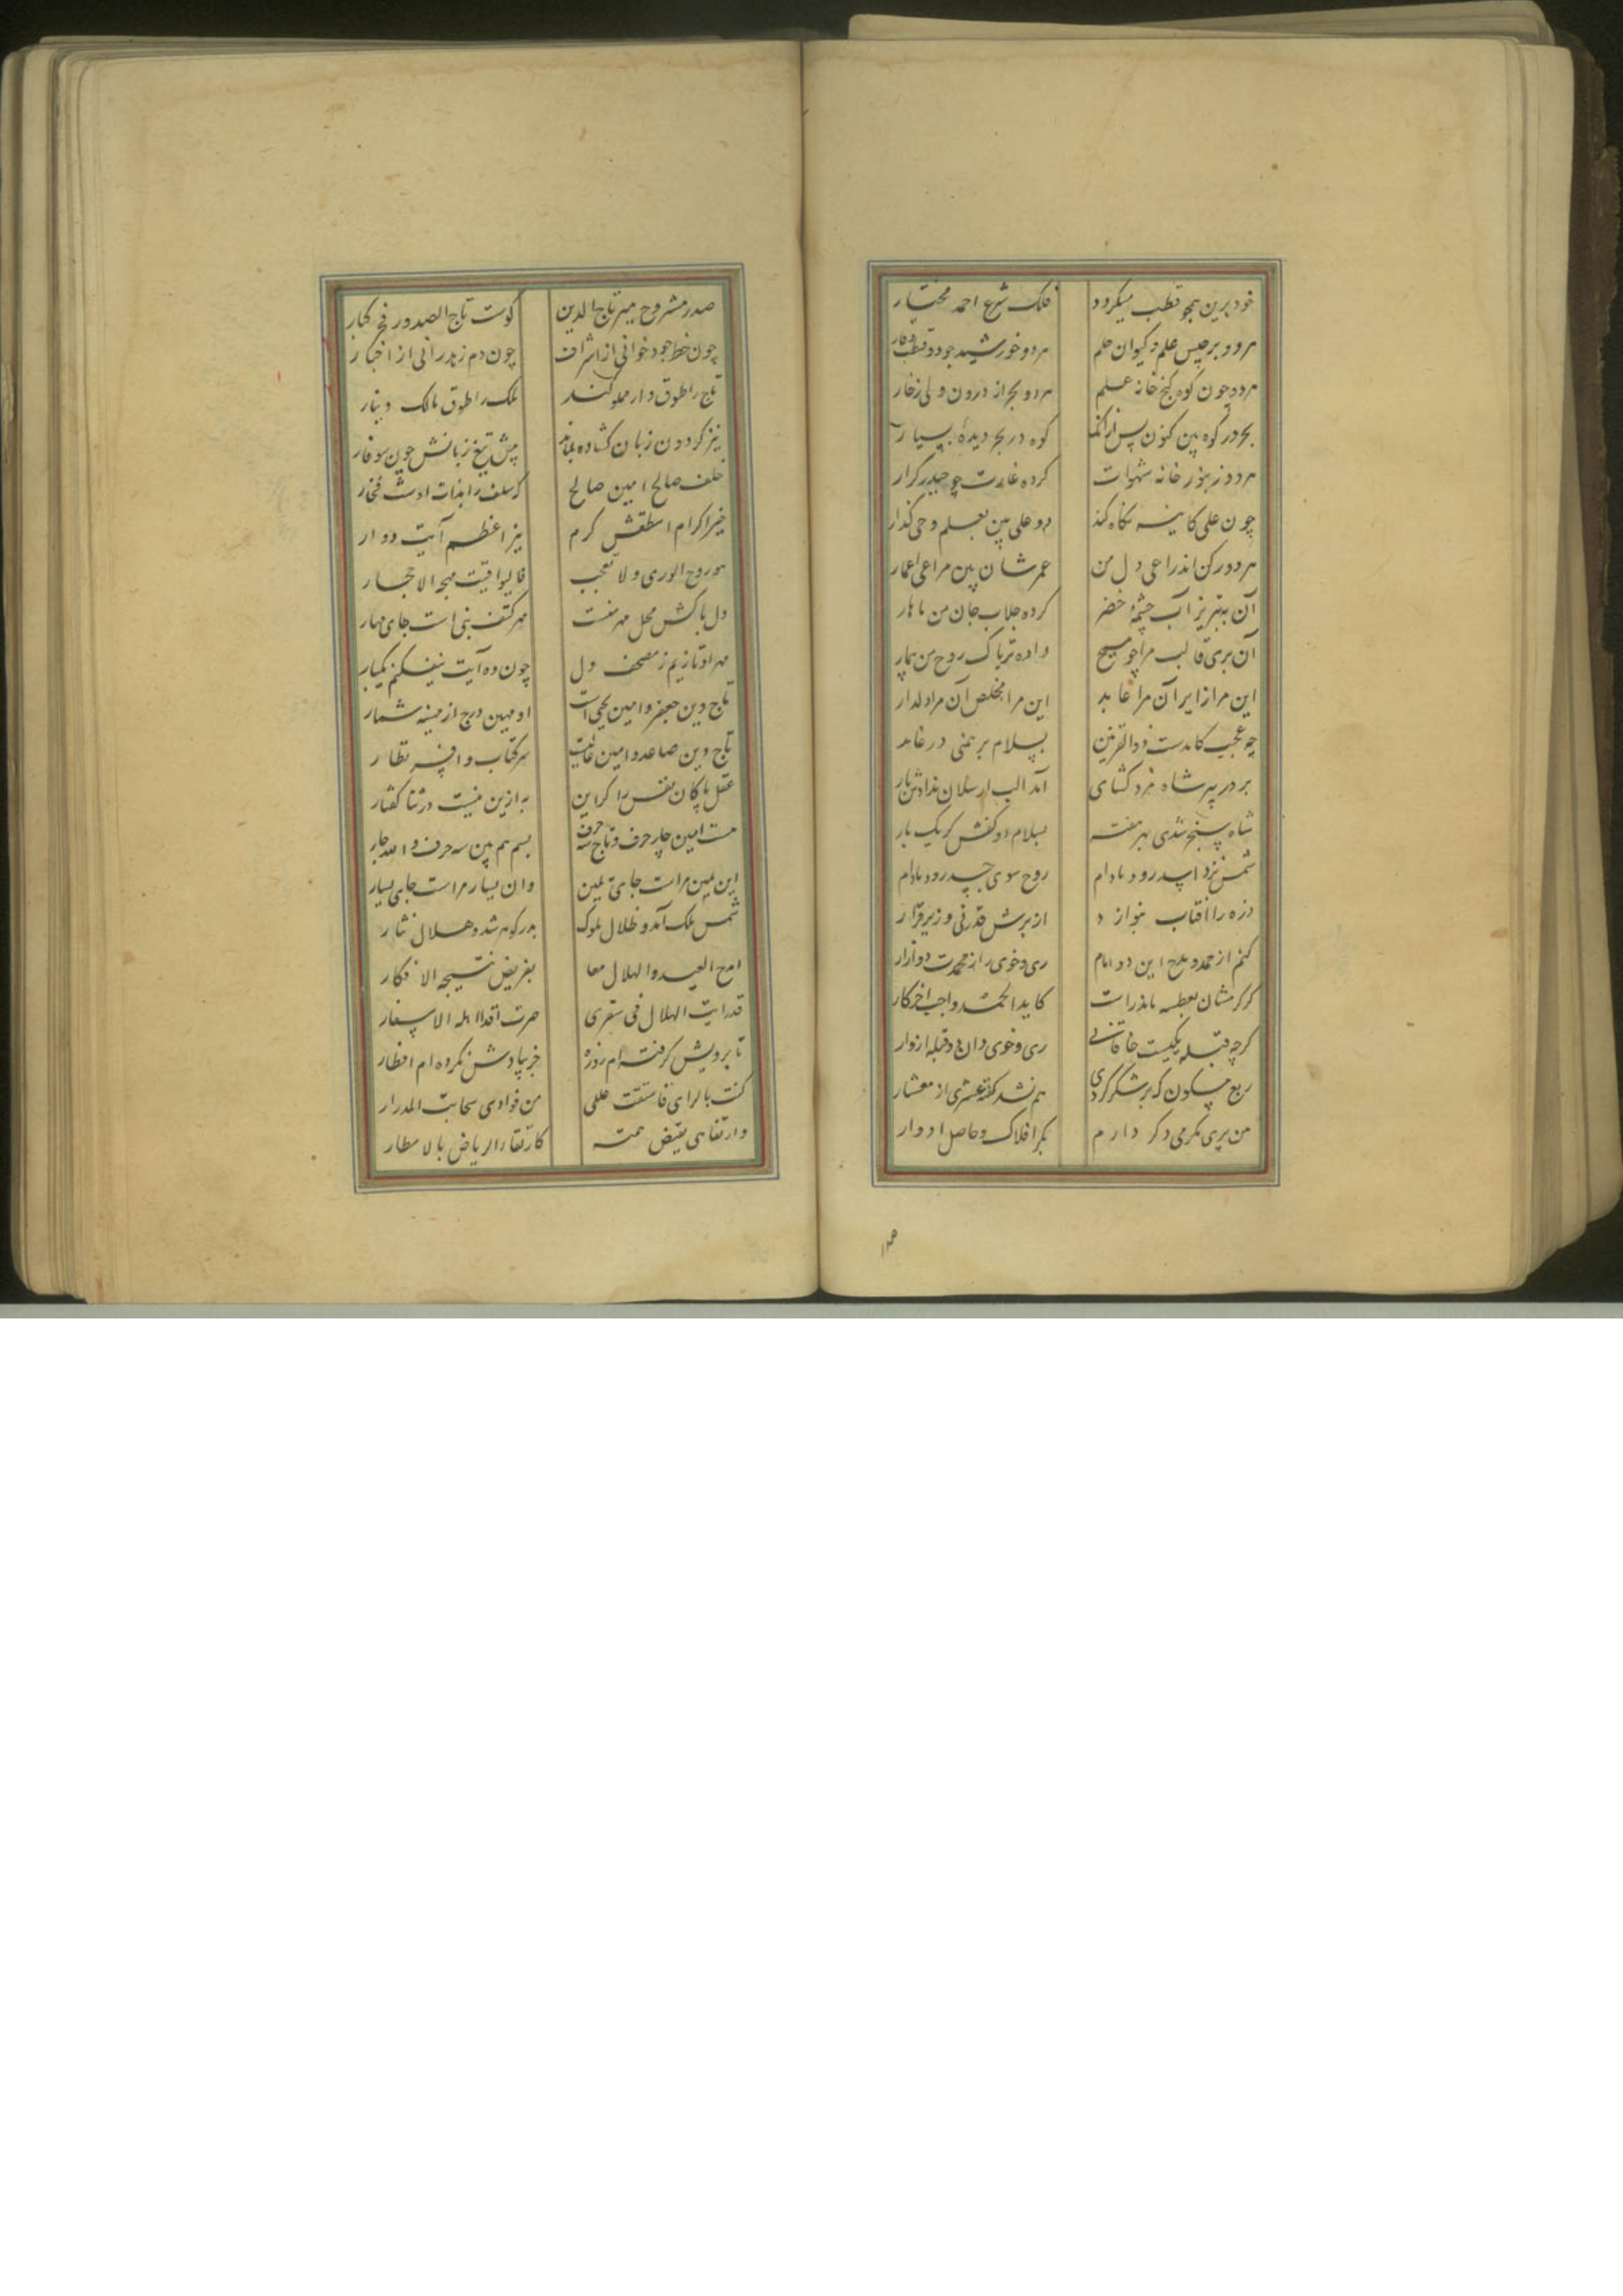 خود برین همچو قطب میکردد فلک شرع احمد مختار
هر دو برجیس علم و کیوان حلم هر دو خورشید جود و قطب وقار
هر دو چون کوه کنج خانه علم هر دو بحر از درون ولی زخار
بحر در کوه بین کنون پس از آنک کوه در بحر دیده بسیار
هر دو زنبور خانه شهوات کرده غارت چو حیدر کرار
چون علی کاینه نکاه کند دو علی بین بعلم وحی گذار
هر دو رکن اند راعی دل من عمر شان بین مراعی اعمار
آن بتبریز آب چشمه خضر کرده جلاب جان من ناهار
آن بری قالب مرا چو مسیح داده تریاک روح من بیمار
این مرا زایر آن مرا عاید این مرا مخلص آن مرا دلدار
چه عجب کامدست ذوالقرنین بسلام برهمنی در غار
بر در پیر شاه مرو کشای آمد الب ارسلان ندادش بار
شاه سنجر شدی بهر هفته بسلام دو کفش کر یک بار
شمس نزد اسد رود مادام روح سوی جسد رود مادام
ذره را افتاب بنوازد از برش قدرتی و زیر قرار
کنم از حمد و مدح این دو امام ری و خوی را ز محمدت دو ازار
کر کرمشان بعطسه ماند راست کاید الحمد واجب اخر کار
کرچه قبله یکیست خاقانی ری و خوی دان دو قبله ازوار
ربع مسکون که بر شکر کردی هم نشد کفته عشری از معشار
من بری مکرمی دکر دارم بکر افلاک و حاصل ادوار
صدر مشروح میر تاج الدین کوست تاج الصدور فخر کبار
چون خط جود خوانی از اشراف چون دم زهد رانی از اخیار
تاج را طوق دار مملو کند ملک را طوق مالک دینار
تیز کردون زبان کشاده بماند پیش تیغ زبانش چون سوفار
خلف صالح امین صالح که سلف را بذات اوست فخار
خیر اکرام اسطقس کرم نیر اعظم آیت دوار
هو روح الوری ولا تعجب فالیواقیت مهجه الاحجار
دل پاکش محل مهر منست مهر کتف نبی است جای مهار
مهر او تازیم ز مصحف دل چون ده آیت نیفکنم بکنار
تاج دین جعفر و امین یحیی است او مهین درج از مهینه شمار
تاج دین صاعد و امین عالیست سر کتاب و افسر نظار
عقل پاکان نفس را کر این به ازین نیست در ثنا کفتار
هست امین چار حرف و تاج سه حرف بسم هم بین سه حرف و الله چار
این یمین مراست جای یمین وان یسار مراست جای یسار
شمس ملک آمد و ظلال ملوک بدر کوهر شد و هلال نثار
امدح العید و الهلال معا بقریض نتیجه الافکار
قد رایت الهلال فی سفری صرت اقدا اهله الاسفار
تا برویش کرفته ام روزه جز بیادش نکرده ام افطار
کنت بالرای فاستقت عللی من فوادی سحابت المدرار
وارتقاهی بفیض همته کارتقاء الریاض بالامطار